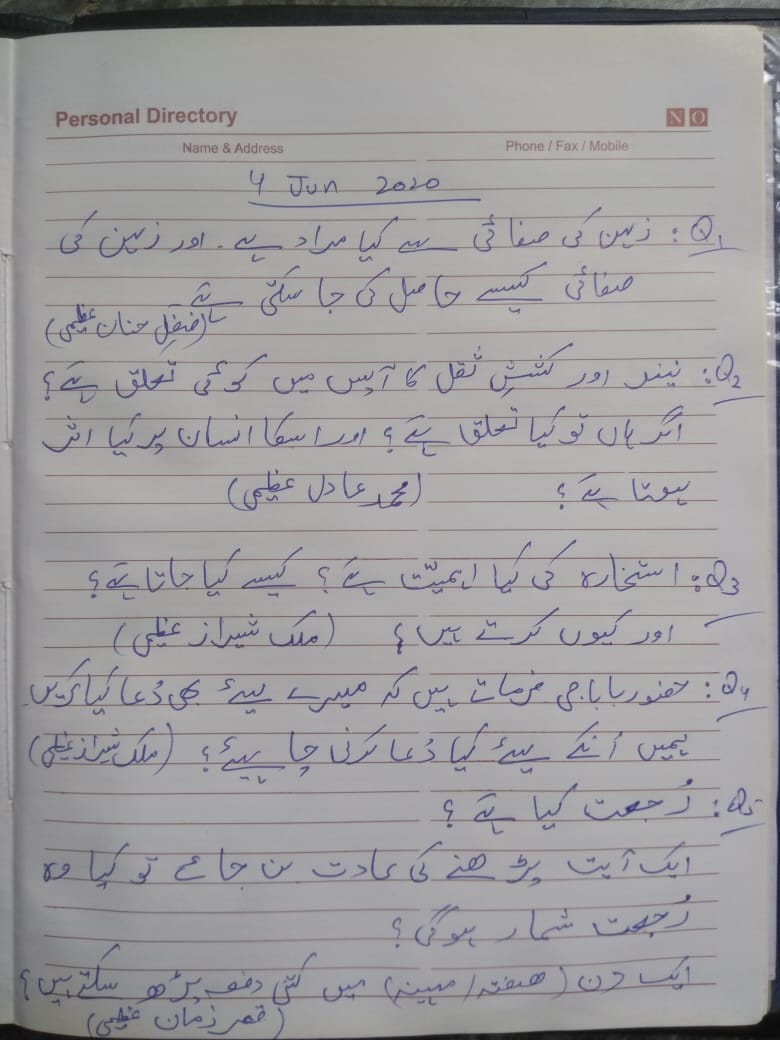 Personal Directory
N O
Name & Address
Phone / Fax / Mobile
4 Jun 2020
Q1: زہن کی صفائی سے کیا مراد ہے۔ اور زہن کی
صفائی کیسے حاصل کی جا سکتی ہے
(فضل حنان عظیمی)
Q2: نیند اور کششِ ثقل کا آپس میں کوئی تعلق ہے؟
اگر ہاں تو کیا تعلق ہے؟ اور اسکا انسان پر کیا اثر
ہوتا ہے؟ (محمد عادل عظیمی)
Q3: استخارہ کی کیا اہمیّت ہے؟ کیسے کیا جاتا ہے؟
اور کیوں کرتے ہیں؟ (ملک شیراز عظیمی)
Q4: حضور بابا جی فرماتے ہیں کہ میرے لیئے بھی دُعا کیا کریں۔
ہمیں اُنکے لیئے کیا دُعا کرنی چاہیئے؟ (ملک شیراز عظیمی)
Q5: رُجعت کیا ہے؟
ایک آیت پڑھنے کی عادت بن جائے تو کیا وہ
رُجعت شمار ہوگی؟
ایک دن (ھفتہ/مہینہ) میں کتنی دفعہ پڑھ سکتے ہیں؟
(قمر زمان عظیمی)